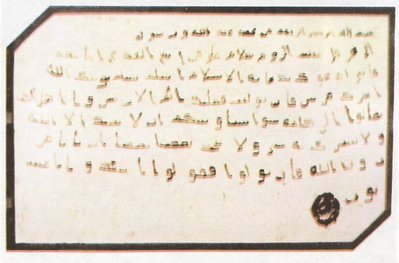 بسم الله الرحمن الرحيم من محمد عبد الله ورسوله
الى هرقل عظيم الروم سلام على من اتبع الهدى اما بعد
فانى ادعوك بدعاية الاسلام اسلم تسلم يوتك الله
اجرك مرتين فان توليت فعليك اثم الاريسيين ويا اهل الكتاب
تعالوا الى كلمة سوا بيننا وبينكم الا نعبد الا الله
ولا نشرك به شيا ولا يتخذ بعضنا بعضا اربابا من
دون الله فان تولوا فقولوا اشهدوا بانا مسلمـ
ون